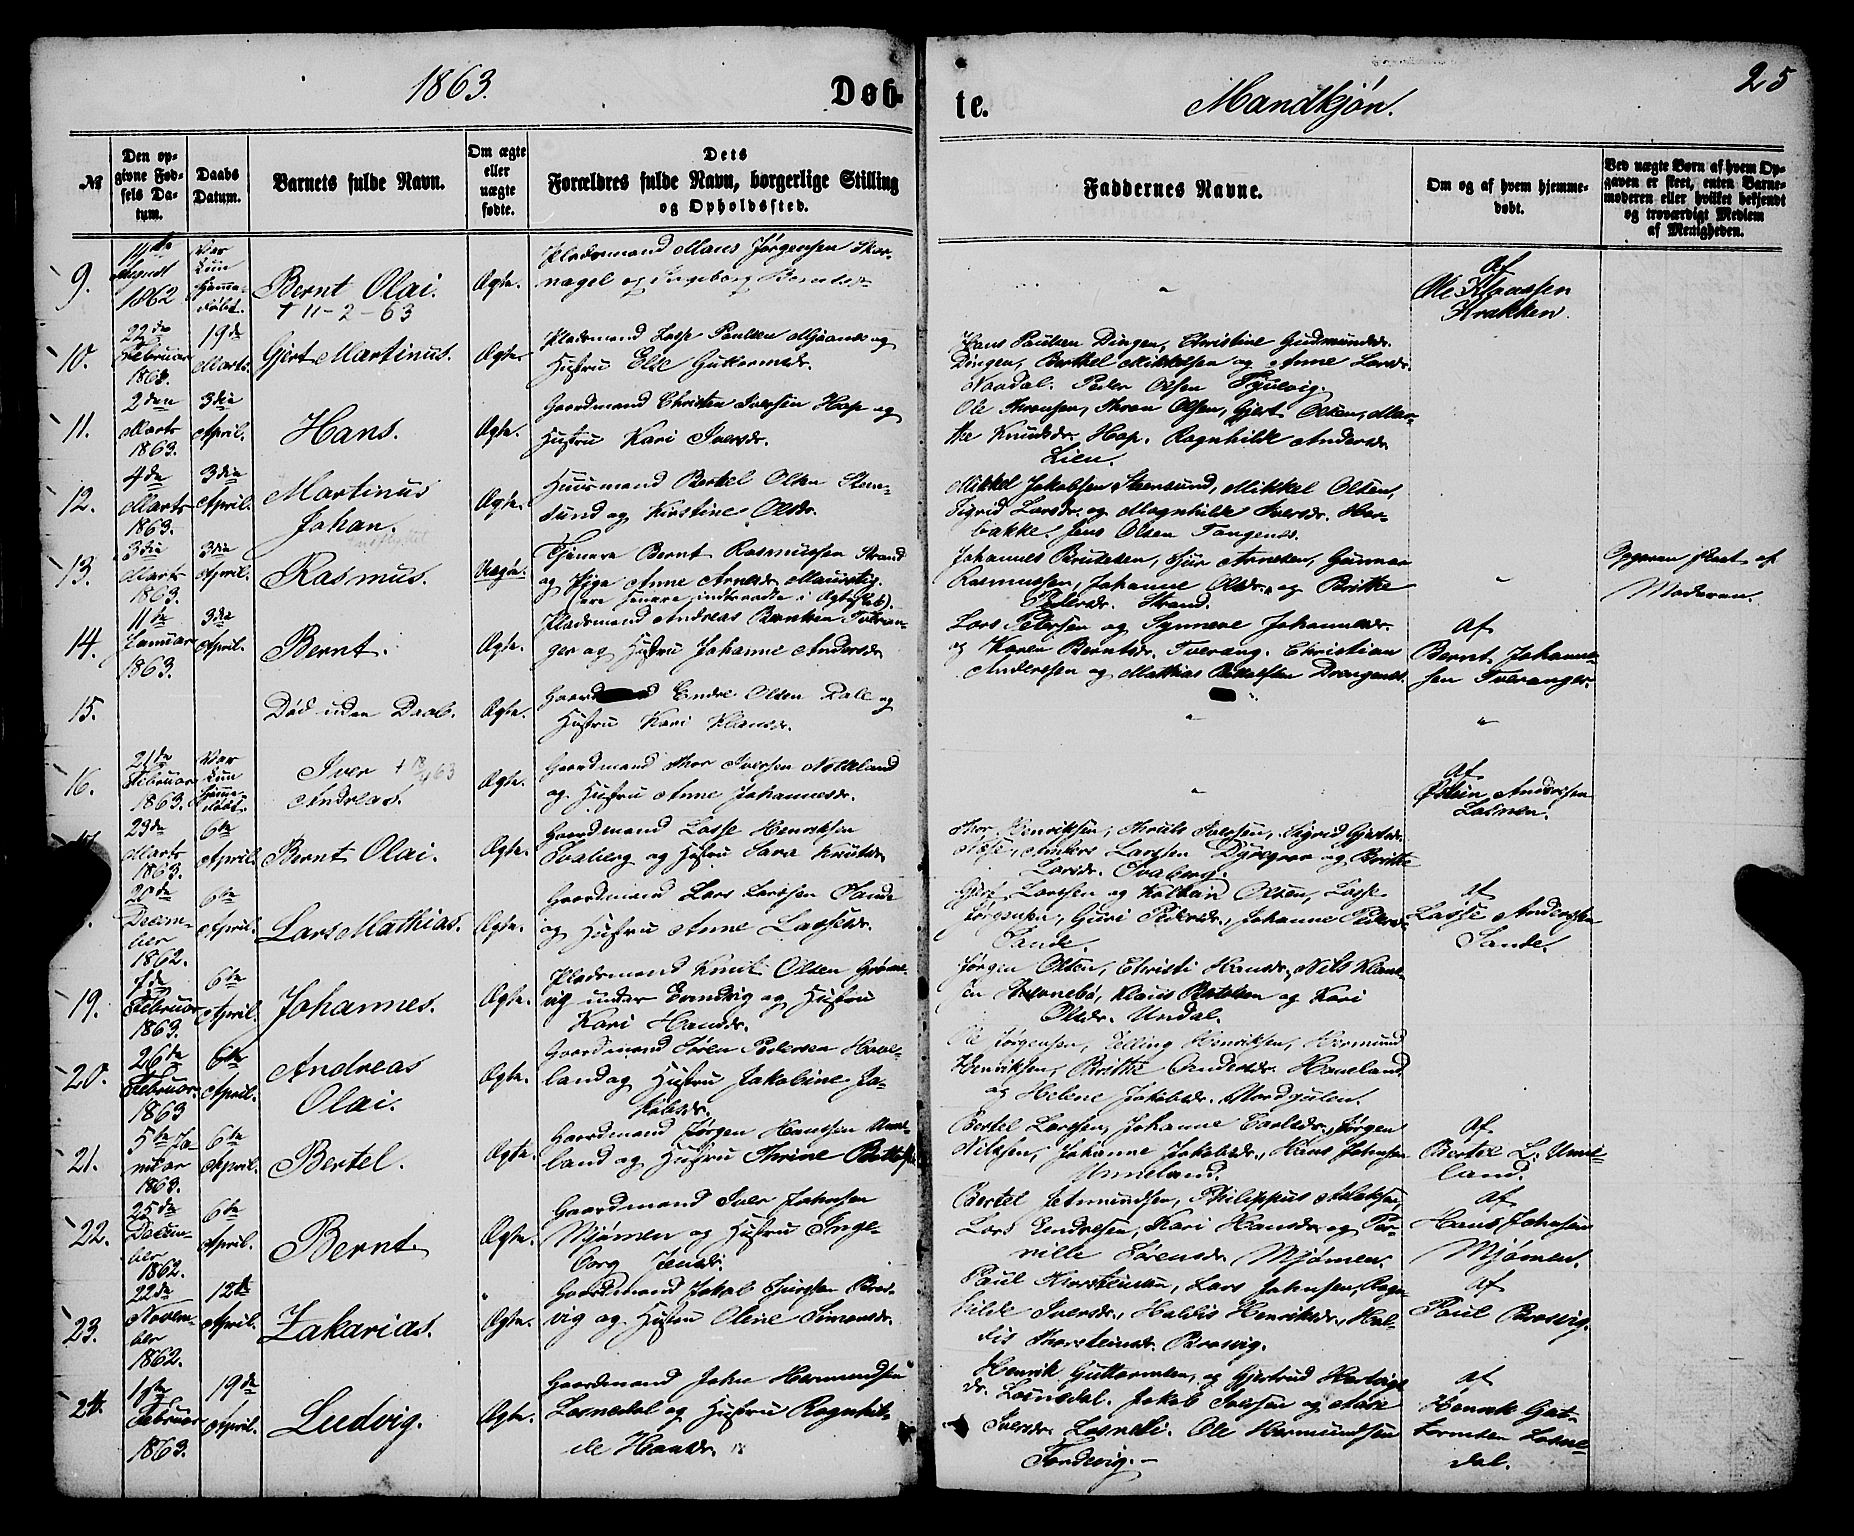 1863.
Døb-
te.
Mandkjøn.
25
№
Den op-
givne Fød-
sels Da-
tum.
Daabs
Datum.
Barnets fulde Navn.
Om ægte
eller
uægte
fødte.
Dets
Forældres fulde Navn, borgerlige Stilling
og Opholdssted.
Faddernes Navne.
Om og af hvem hjemme-
døbt.
Ved uægte Børn af hvem Op-
gaven er skeet, enten Barne-
moderen eller hvilket bekjendt
og troværdigt Medlem
af Menigheden.
9.
14de
August
1862
Var
kun
hjemme-
døbt.
Bernt Olai.
† 11-2-63
Ægte.
Pladsmand Mons Jørgensen Skor-
nagel og Ingeborg Berntsdr
"
af
Ole Klaussen
Krakken.
10.
22de
Februar
1863.
19de
Marts.
Gjert Martinus.
Ægte.
Pladsmand Lasse Paulsen og
Hustru Else Guttormsdr.
Hans Paulsen Dingen, Christine Gudmundsdr.
Dingen, Berthel Mikkelsen og Anne Larsdr.
Nordal. Peder Olsen
11.
2den
Marts
1863.
3die
April.
Hans.
Ægte.
Gaardmand Christen Iversen Hop og
Hustru Kari Iversdr.
Ole Olsen, Gjert Olsen, Mar-
the Knudsdr. Hop. Ragnhilde Andersdr
Lien.
12.
4de
Marts
1863.
3die
April.
Martinus
Johan.
Ægte.
Huusmand Bertel Olsen Sten-
sund og Kirstine Olsdr.
Mikkel Jakobsen Steensund, Mikkel Olsen,
Sigrid Larsdr. og Magnhilde Iversdr. Hor-
bakke. Jens Olsen Tangenes.
13.
3die
Marts
1863.
3die
April.
Rasmus.
Uægte.
Tjenere Bernt Rasmussen Strand
og Pige Anne Arnesdr.
(ere senere indtraadte i Ægteskab).
Johannes Knudsen, Sjur Arnesen, Gunnar
Rasmussen, Johanne Olsdr. og Britthe
Pedersdr. Strand.
"
Opgaven skeet af
Moderen.
14.
11te
Januar
1863.
3die
April.
Bernt.
Ægte.
Pladsmand Andreas Berntsen Tveran-
ger og Hustru Johanne Andersdr
Lars Petersen og Synneve Johannesdr.
og Karen Berntsdr. Tverang. Christian
Andersen og Mathias
af
Bernt Johanne-
sen Tveranger.
15.
Død uden Daab.
Ægte.
Endre Olsen Dale og
Hustru Kari Klausdr.
"
"
16.
21de
Februar
1863.
Var
kun
hjemme-
døbt.
Iver
Andreas.
Ægte.
Gaardmand Thor Iversen Notteland
og Hustru Anne Johannesdr.
"
af
Østen Andersen
Losnen.
23de
Marts
1863.
6te
April.
Bernt Olai.
Ægte.
Gaardmand Lasse Henriksen
Svaberg og Hustru Sara Knutsdr
Thor Henriksen, Iversen, Sigrid Gjertsdr.
Næse, Anders Larssen Dyregrov og Britthe
Larsdr. Svaberg.
20de
Decem-
ber
1862.
6te
April.
Lars Mathias.
Ægte.
Gaardmand Lars Larssen Sande
og Hustru Anne Lassesdr.
Gjert Larssen og Kolbein Olsen, Lasse
Jørgensen, Guri Pedersdr., Johanne Pedersdr
Sande.
af
Lasse Andersen
Sande.
19.
Februar
1863.
6te
April.
Johannes.
Ægte.
Pladsmand Knut Olsen Grøne-
vig under Evendvig og Hustru
Kari Hansdr.
Jørgen Olsen, Christi Hansdr, Nils Klau-
sen Klaus Bertelsen og Kari
Olsdr. Undal.
20.
26de
Februar
1863
6te
April.
Andreas
Olai.
Ægte.
Gaardmand Søren Pedersen Have-
land og Hustru Jakobine Ja-
kobsdr.
Ole Jørgensen, Elling Henriksen, Hermund
Henriksen, Britthe Andersdr. Haveland
og Helene Jakobsdr. Nordgulen.
21.
5te Ja-
nuar
1863.
6te
April.
Bertel.
Ægte.
Gaardmand Jørgen Hanssen Unne-
land og Hustru Thrine
Bertel Larssen, Johanne Jørgen
Nilssen, Johanne Jakobsdr., Hans Johnsen
Unneland.
af
Bertel L. Unne-
land.
22.
25de
Decem-
ber
1862.
6te
April.
Bernt.
Ægte.
Gaardmand Iver Johnsen
Mjømen og Hustru Inge-
borg Jensdr.
Bertel Jetmundsen, Philippus
Lars Endresen, Kari Hansdr. og Per-
nille Sørensdr. Mjømen.
af
Hans Johnsen
Mjømen.
23.
22de
Novem-
ber
1862.
12te
April.
Zakarias.
Ægte.
Gaardmand Jakob Bros-
vig og Hustru Oline Simonsdr.
Paul Thorsteinsen, Lars Johnsen, Ragn-
hilde Iversdr., Haldis Henriksdr., Hal-
dis Thorsteinsdr. Brosvig.
af
Paul Brosvig.
24.
1ste
Februar
1863.
19de
April.
Ludvig.
Ægte.
Gaardmand John Hermundsen
Losnedal og Hustru Ragnhil-
de Hansdr.
Henrik Guttormsen, og Gjertrud
dr. Losnedal. Jakob Iversen og
Iversdr. Ole Hermundsen
Tordevig.
af
Henrik Gut-
tormsen Losne-
dal.